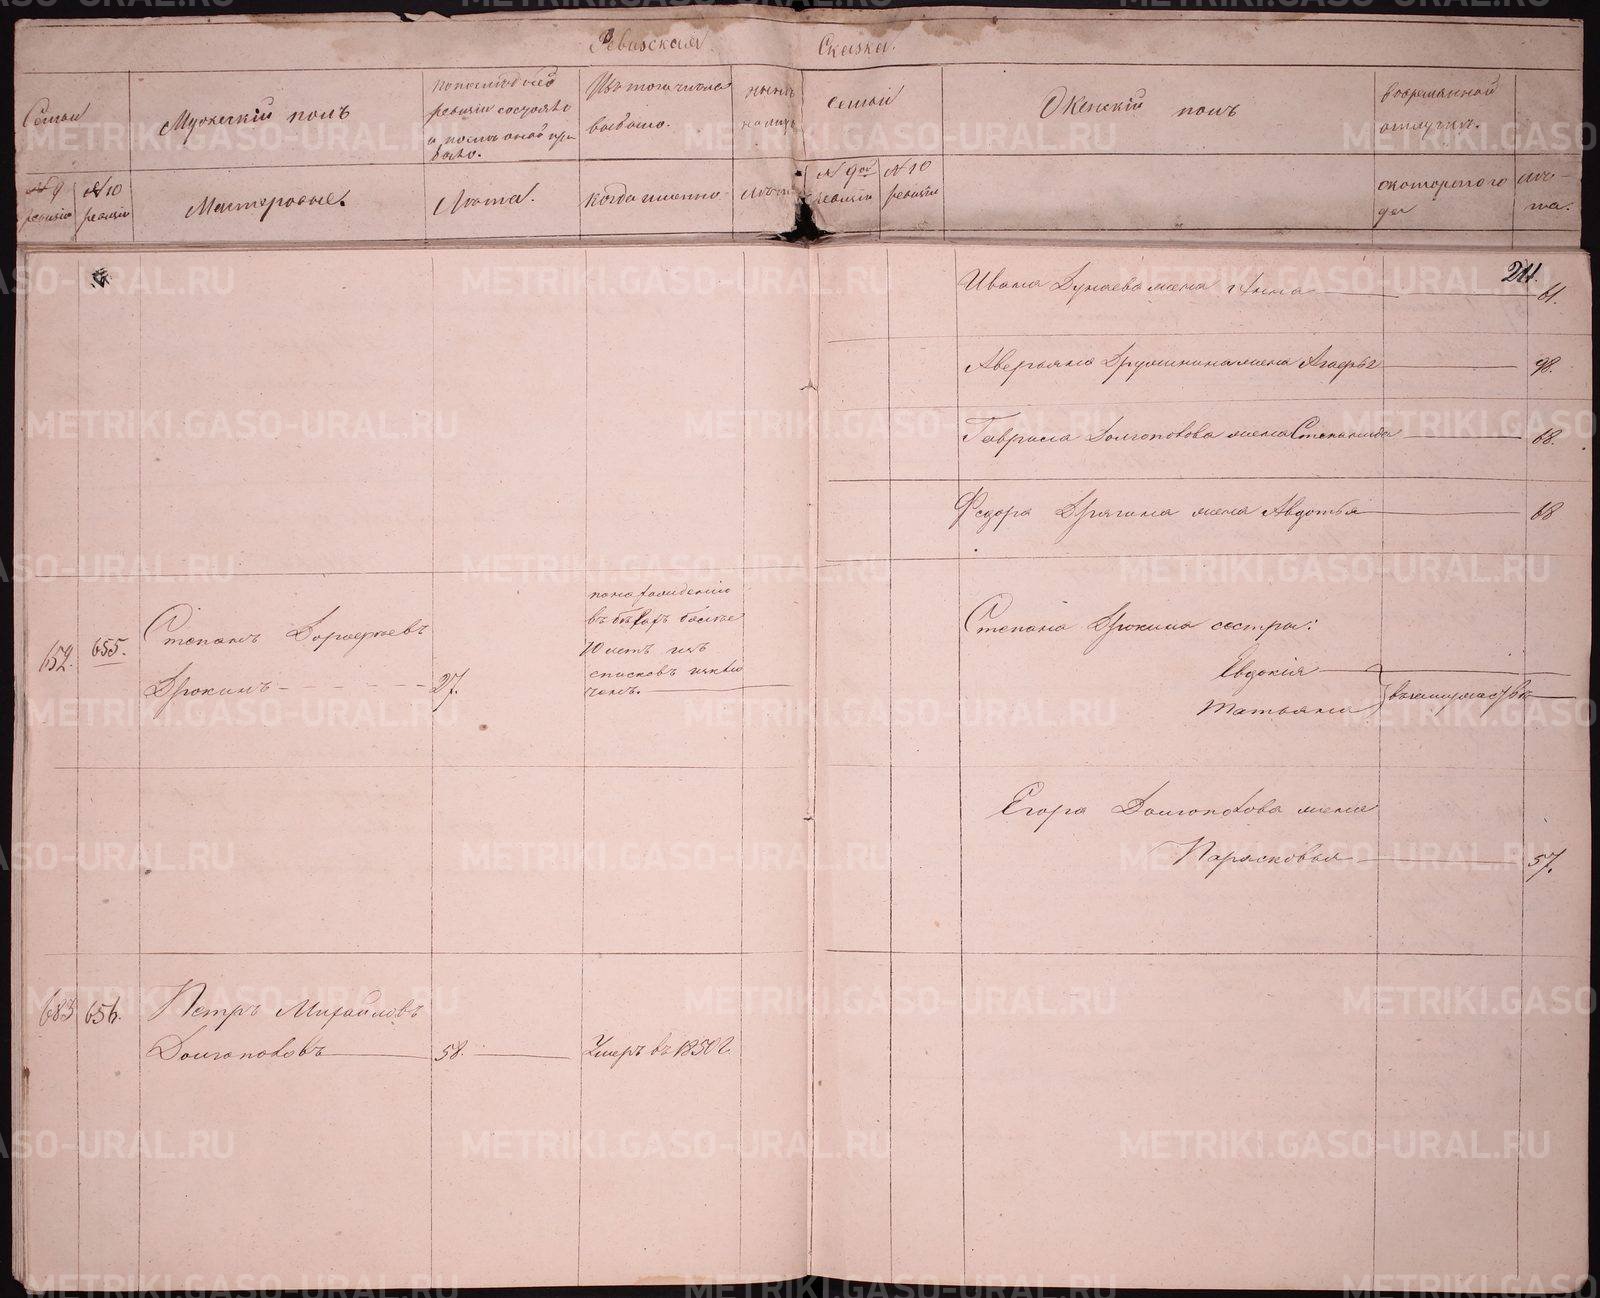 Ревизская Сказка.
Семьи
Мужескiй полъ
По последней ревизiи состояло и после оной прибыло.
Изъ того числа выбыло.
ныне на лицо
семьи
Женскiй полъ
Во временной отлучке.
№ 9 ревизiи
№ 10 ревизiи
Мастеровые.
Лета.
Когда именно
лета
№ 9ой ревизiи
№ 10 ревизiи
съ котораго года
Ле-
та.
211.
Ивана Дунаева жена Анна 61.
Аверьяна Дружинина жена Агафья 98.
Гаврила Долгополова жена Степанида 68.
Федора Дрягина жена Авдотья 68
652. 655. Степанъ Дорофеевъ
Дрокинъ 27.
по нахожденiю
въ бегахъ более
10 летъ изъ
списковъ исклю
ченъ.
Степана Дрокина сестры:
Евдокiя
Татьяна
въ замужестве
Егора Долгополова жена
Парасковья 57.
683 656. Петръ Михайловъ
Долгополовъ 58. Умеръ въ 1850 г.
METRIKI.GASO-URAL.RU